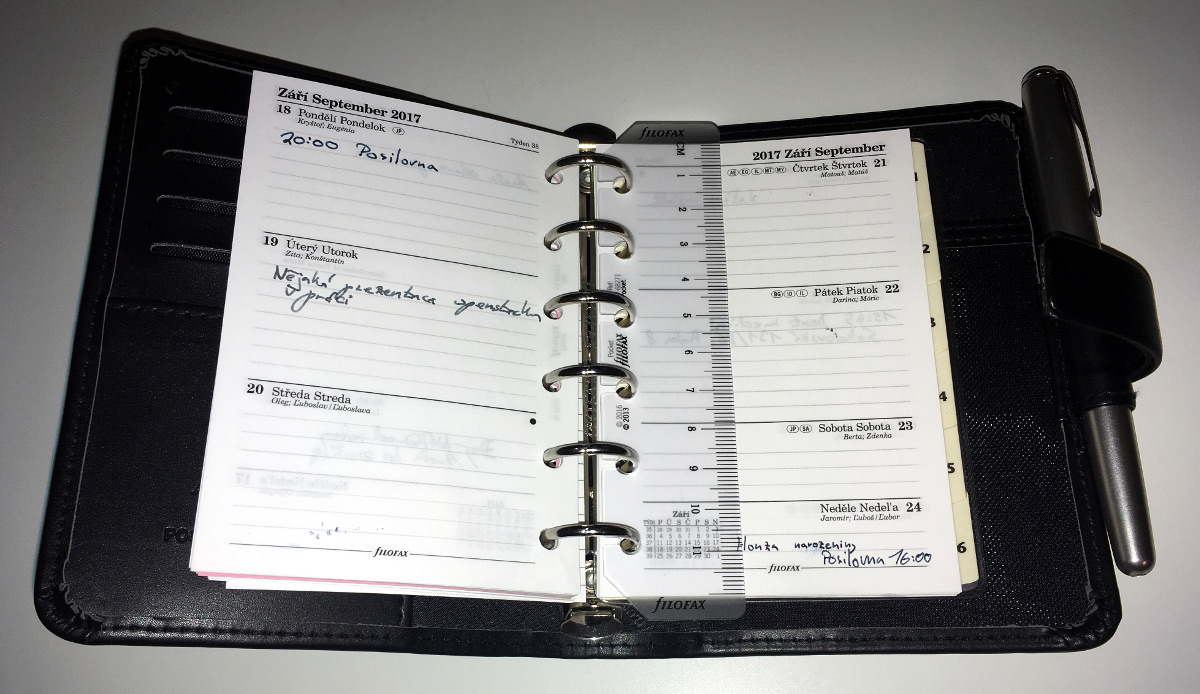 Září September 2017
18 Pondělí Pondelok JP
Kryštof; Eugénia
Týden 38
20:00 Posilovna
19 Úterý Utorok
Zita; Konstantín
Nějaká prezentace openstreetu
v práci
20 Středa Streda
Oleg; Ľuboslav/Ľuboslava
filofax
filofax
CM
1
2
3
4
5
6
7
8
9
10
11
Pocket
filofax
© 2016
© 2013
Září
TÝD P Ú S Č P S N
filofax
2017 Září September
AE EG IL MT MY Čtvrtek Štvrtok 21
Matouš; Matúš
BG IL Pátek Piatok 22
Darina; Móric
JP SA Sobota Sobota 23
Berta; Zdenka
Neděle Nedeľa 24
Jaromír; Ľuboš/Ľubor
Honza narozeniny
Posilovna 16:00
filofax
1
2
3
4
5
6